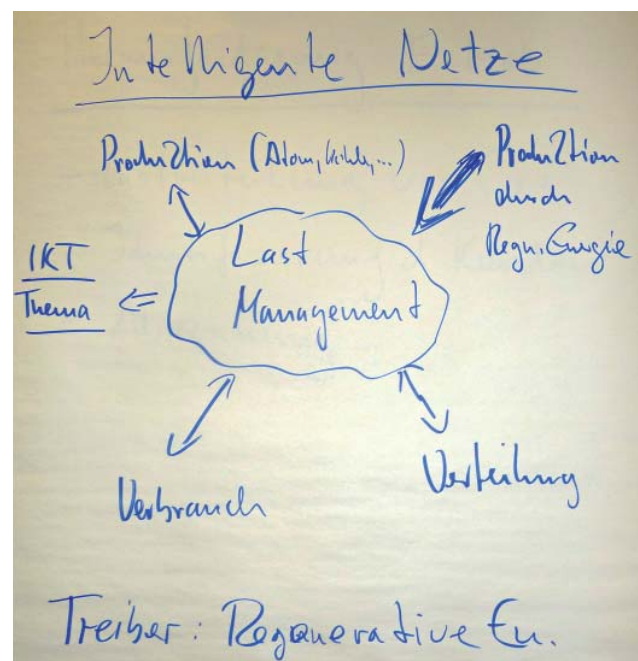 Intelligente Netze
Produktion (Atom, Kohle, ...)
Produktion
durch
Regn. Energie
IKT
Thema
Last
Management
Verbrauch
Verteilung
Treiber: Regenerative En.